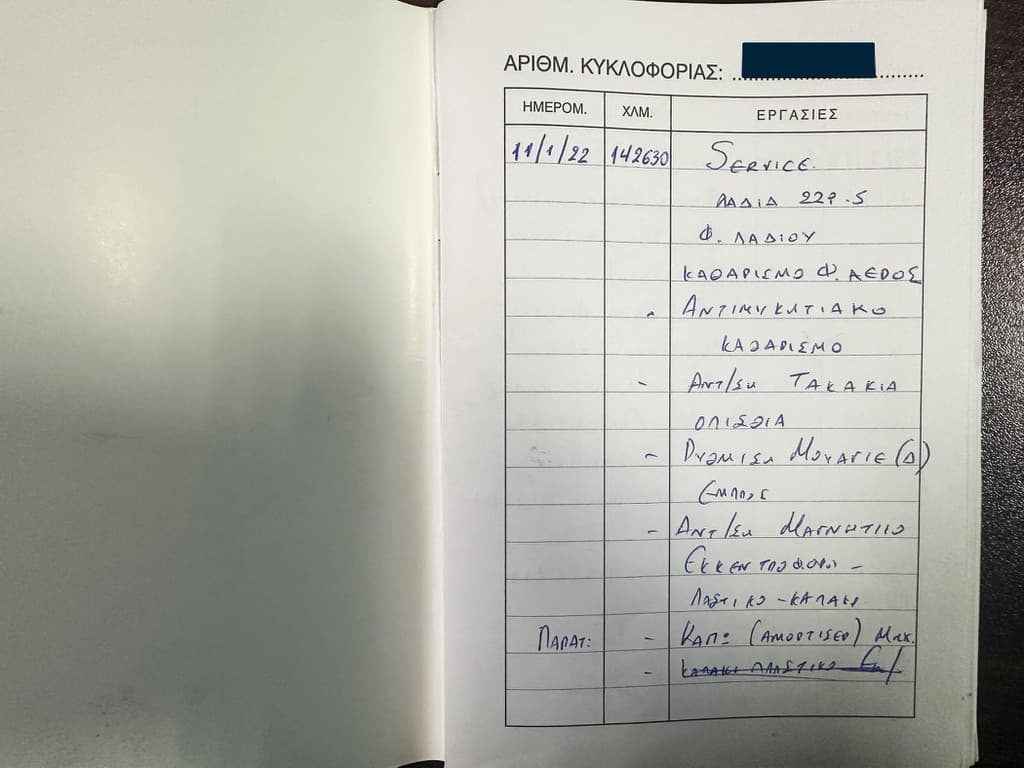 ΑΡΙΘΜ. ΚΥΚΛΟΦΟΡΙΑΣ:
ΗΜΕΡΟΜ. ΧΛΜ. ΕΡΓΑΣΙΕΣ
11/1/22 142630 SERVICE.
ΛΑΔΙΑ 229.5
Φ. ΛΑΔΙΟΥ
ΚΑΘΑΡΙΣΜΟ Φ. ΑΕΡΟΣ
- ΑΝΤΙΜΥΚΗΤΙΑΚΟ
ΚΑΘΑΡΙΣΜΟ
- ΑΝΤ/ΣΗ ΤΑΚΑΚΙΑ
ΟΠΙΣΘΙΑ
- ΡΥΘΜΙΣΗ ΜΟΥΑΓΙΕ (Δ)
ΕΜΠΡΣ
- ΑΝΤ/ΣΗ ΜΑΓΝΗΤΙΚΟ
ΕΚΚΕΝΤΡΟΦΟΡΟΥ -
ΛΑΣΤΙΚΟ - ΚΑΠΑΚΙ
ΠΑΡΑΤ: - ΚΑΠΩ (ΑΜΟΡΤΙΣΕΡ)
- ΚΑΠΑΚΙ ΠΛΑΣΤΙΚΟ